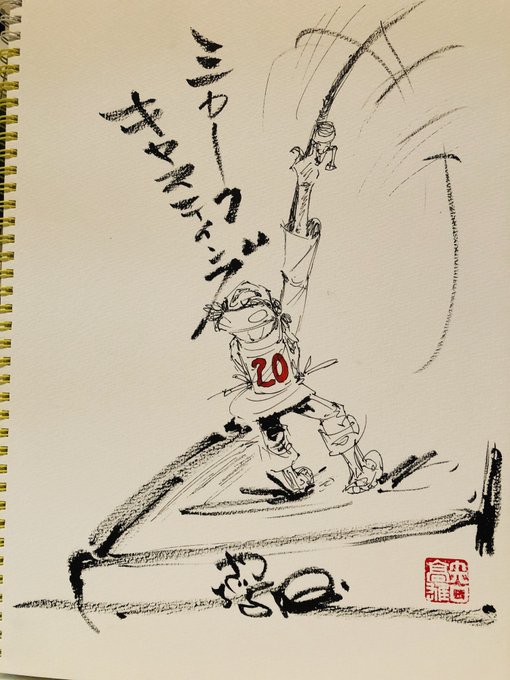 ミカーク
キャスティング
20